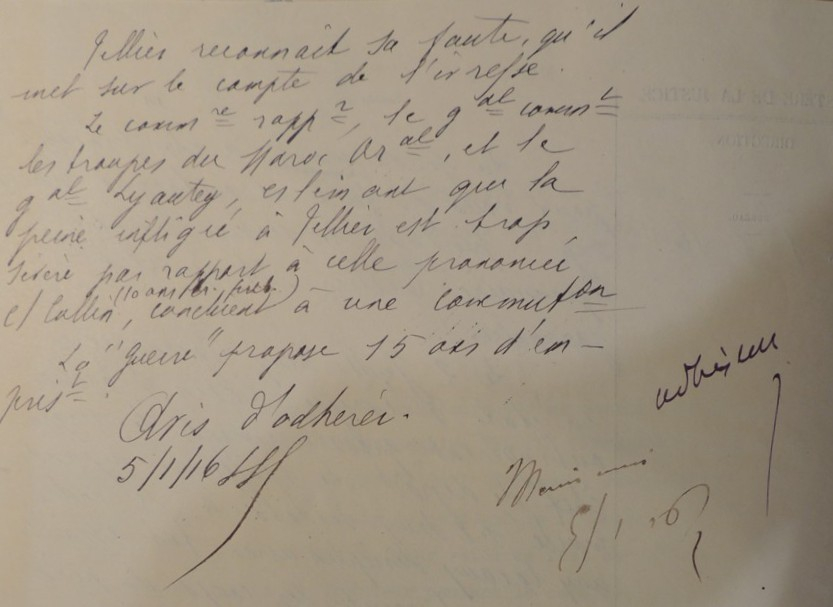 Tellier reconnaît sa faute, qu'il
met sur le compte de l'ivresse.
Le comm re rapp r, le g al comm t
les troupes du Maroc Or al, et le
g al Lyautey, estimant que la
peine infligée à Tellier est trop
sévère par rapport à celle prononcée
(10 ans tr. pub.)
c/ Collin, concluent à une commut on
La "Guerre" propose 15 ans d'em-
pris t.
Avis d'adhérer.
5/1/16
adhésion
Même avis
5/1 16